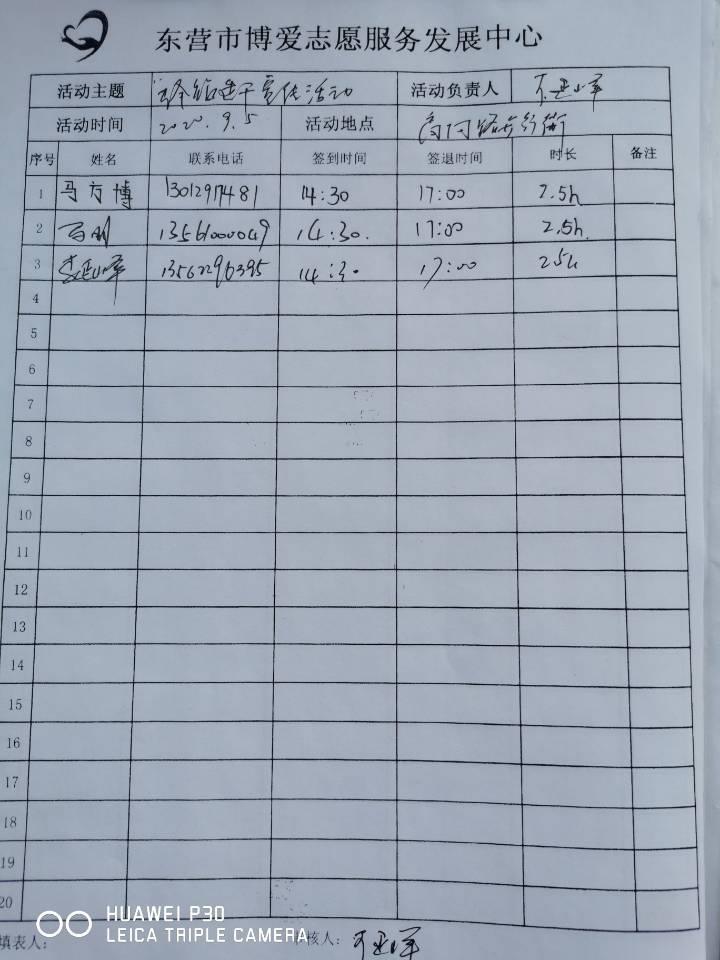 东营市博爱志愿服务发展中心
活动主题 宣传活动 活动负责人
活动时间 2020.9.5 活动地点 步行街
序号 姓名 联系电话 签到时间 签退时间 时长 备注
1 马方博 1301297481 14:30 17:00 2.5h
2 13561000049 14:30. 17:00 2.5h.
3 13562296395 14:30 17:00 25h
4
5
6
7
8
9
10
11
12
13
14
15
16
17
18
19
20
填表人: 核人:
HUAWEI P30
LEICA TRIPLE CAMERA